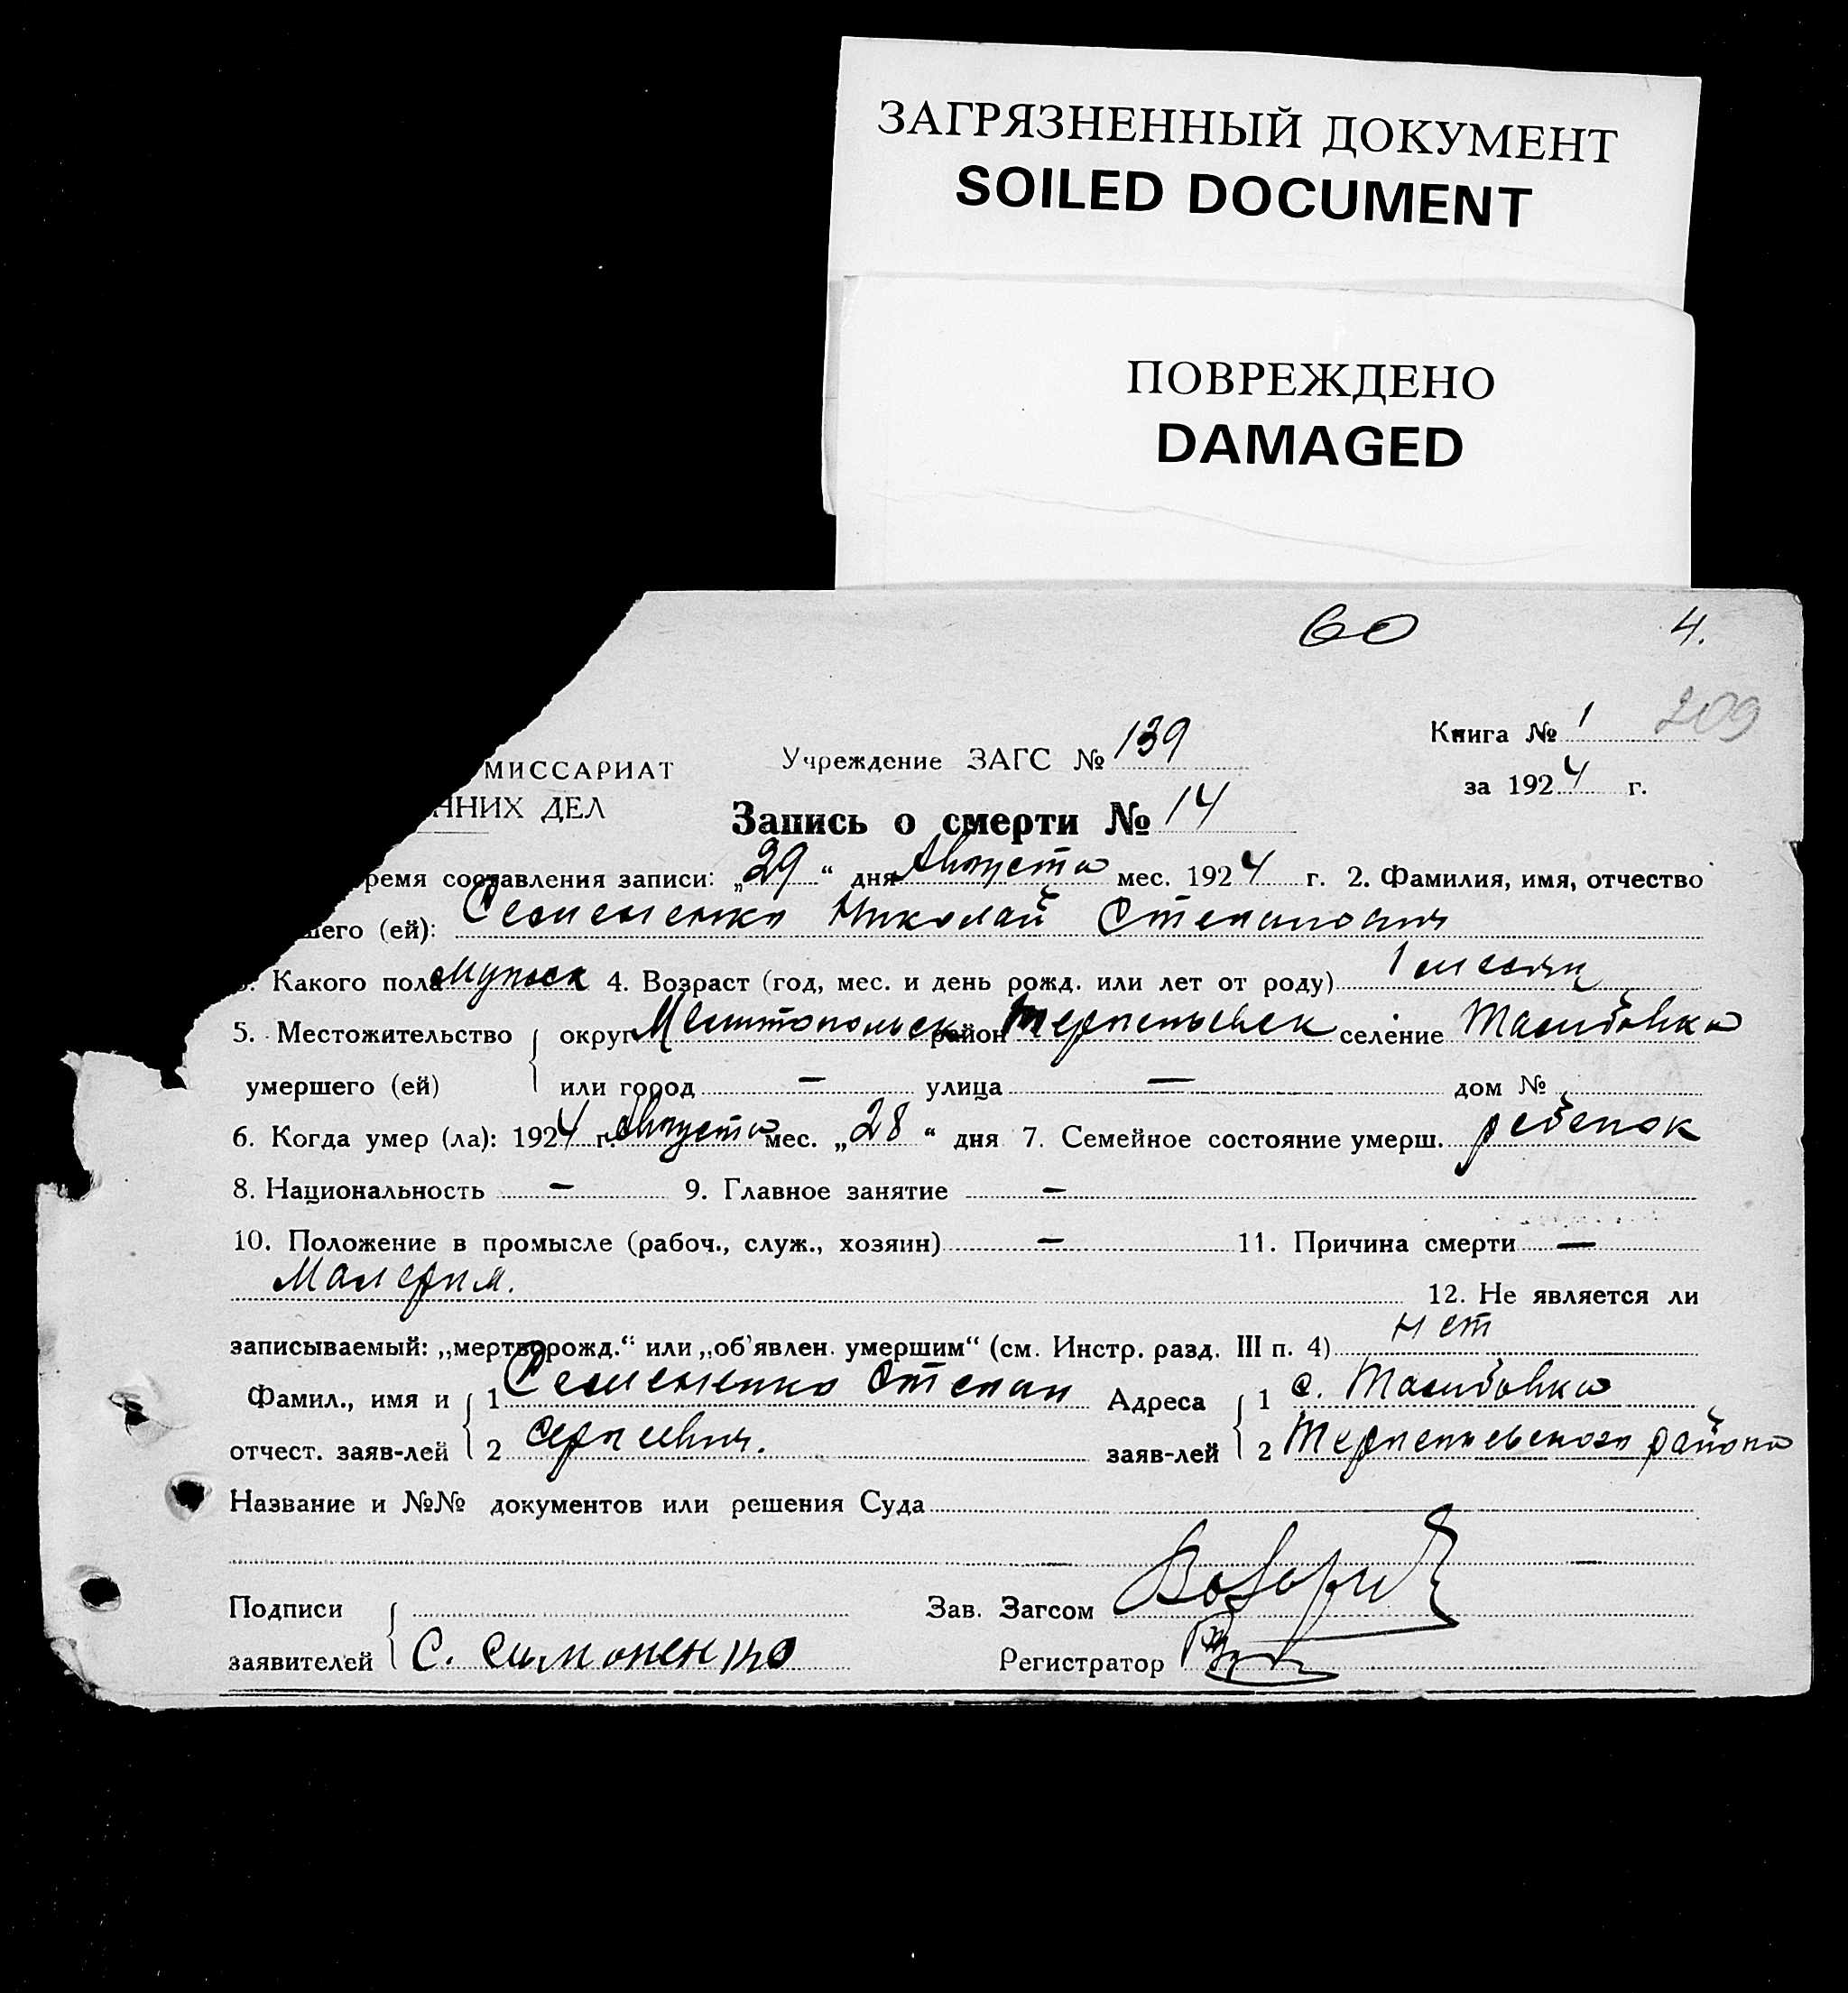 ЗАГРЯЗНЕННЫЙ ДОКУМЕНТ
SOILED DOCUMENT
ПОВРЕЖДЕНО
DAMAGED
60 4.
209
Книга № 1
МИССАРИАТ Учреждение ЗАГС № 139
за 1924 г.
ННИХ ДЕЛ
Запись о смерти № 14
ремя составления записи: „29“ дня Августа мес. 1924 г. 2. Фамилия, имя, отчество
шего (ей): Николай Степанович
3. Какого пола мужск 4. Возраст (год, мес. и день рожд. или лет от роду) 1 месяц
5. Местожительство округ Мелитопольск район Терпеньевск селение
умершего (ей) или город — улица — дом №
6. Когда умер (ла): 1924 г. Августа мес. „28“ дня 7. Семейное состояние умерш. ребенок
8. Национальность — 9. Главное занятие —
10. Положение в промысле (рабоч., служ., хозяин) — 11. Причина смерти —
Малерия. 12. Не является ли
записываемый: „мертворожд.“ или „об'явлен. умершим“ (см. Инстр. разд. III п. 4) нет
Фамил., имя и 1 Степан Адреса 1 с.
отчест. заяв-лей 2 Сергеевич. заяв-лей 2 Терпеньевского района
Название и №№ документов или решения Суда
Подписи Зав. Загсом
заявителей С. Симоненко Регистратор